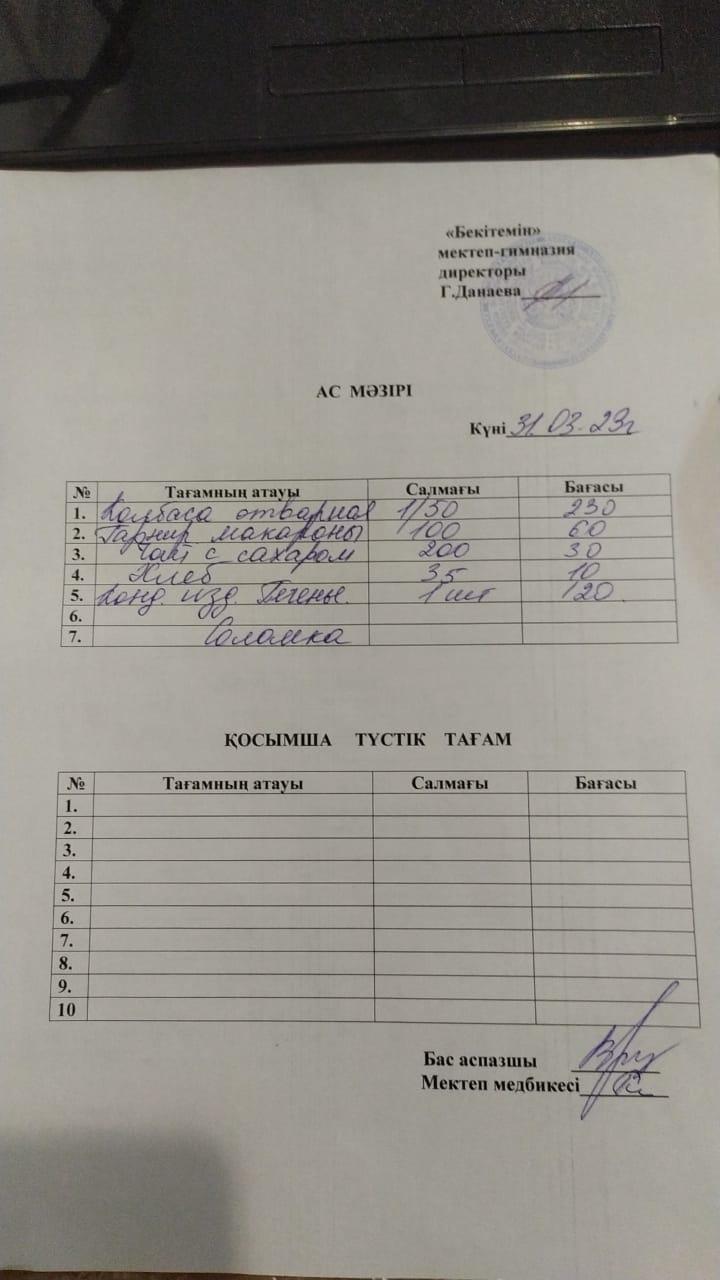 «Бекітемін»
мектеп-гимназия
директоры
Г.Данаева
АС МӘЗІРІ
Күні 31.03.23г
№ Тағамның атауы Салмағы Бағасы
1. Колбаса отварная 1/50 230
2. Гарнир макароны 100 60
3. Чай с сахаром 200 30
4. Хлеб 35 10
5. Конд. изд. Печенье. 1 шт 120
6.
7. Соломка
ҚОСЫМША ТҮСТІК ТАҒАМ
№ Тағамның атауы Салмағы Бағасы
1.
2.
3.
4.
5.
6.
7.
8.
9.
10
Бас аспазшы
Мектеп медбикесі